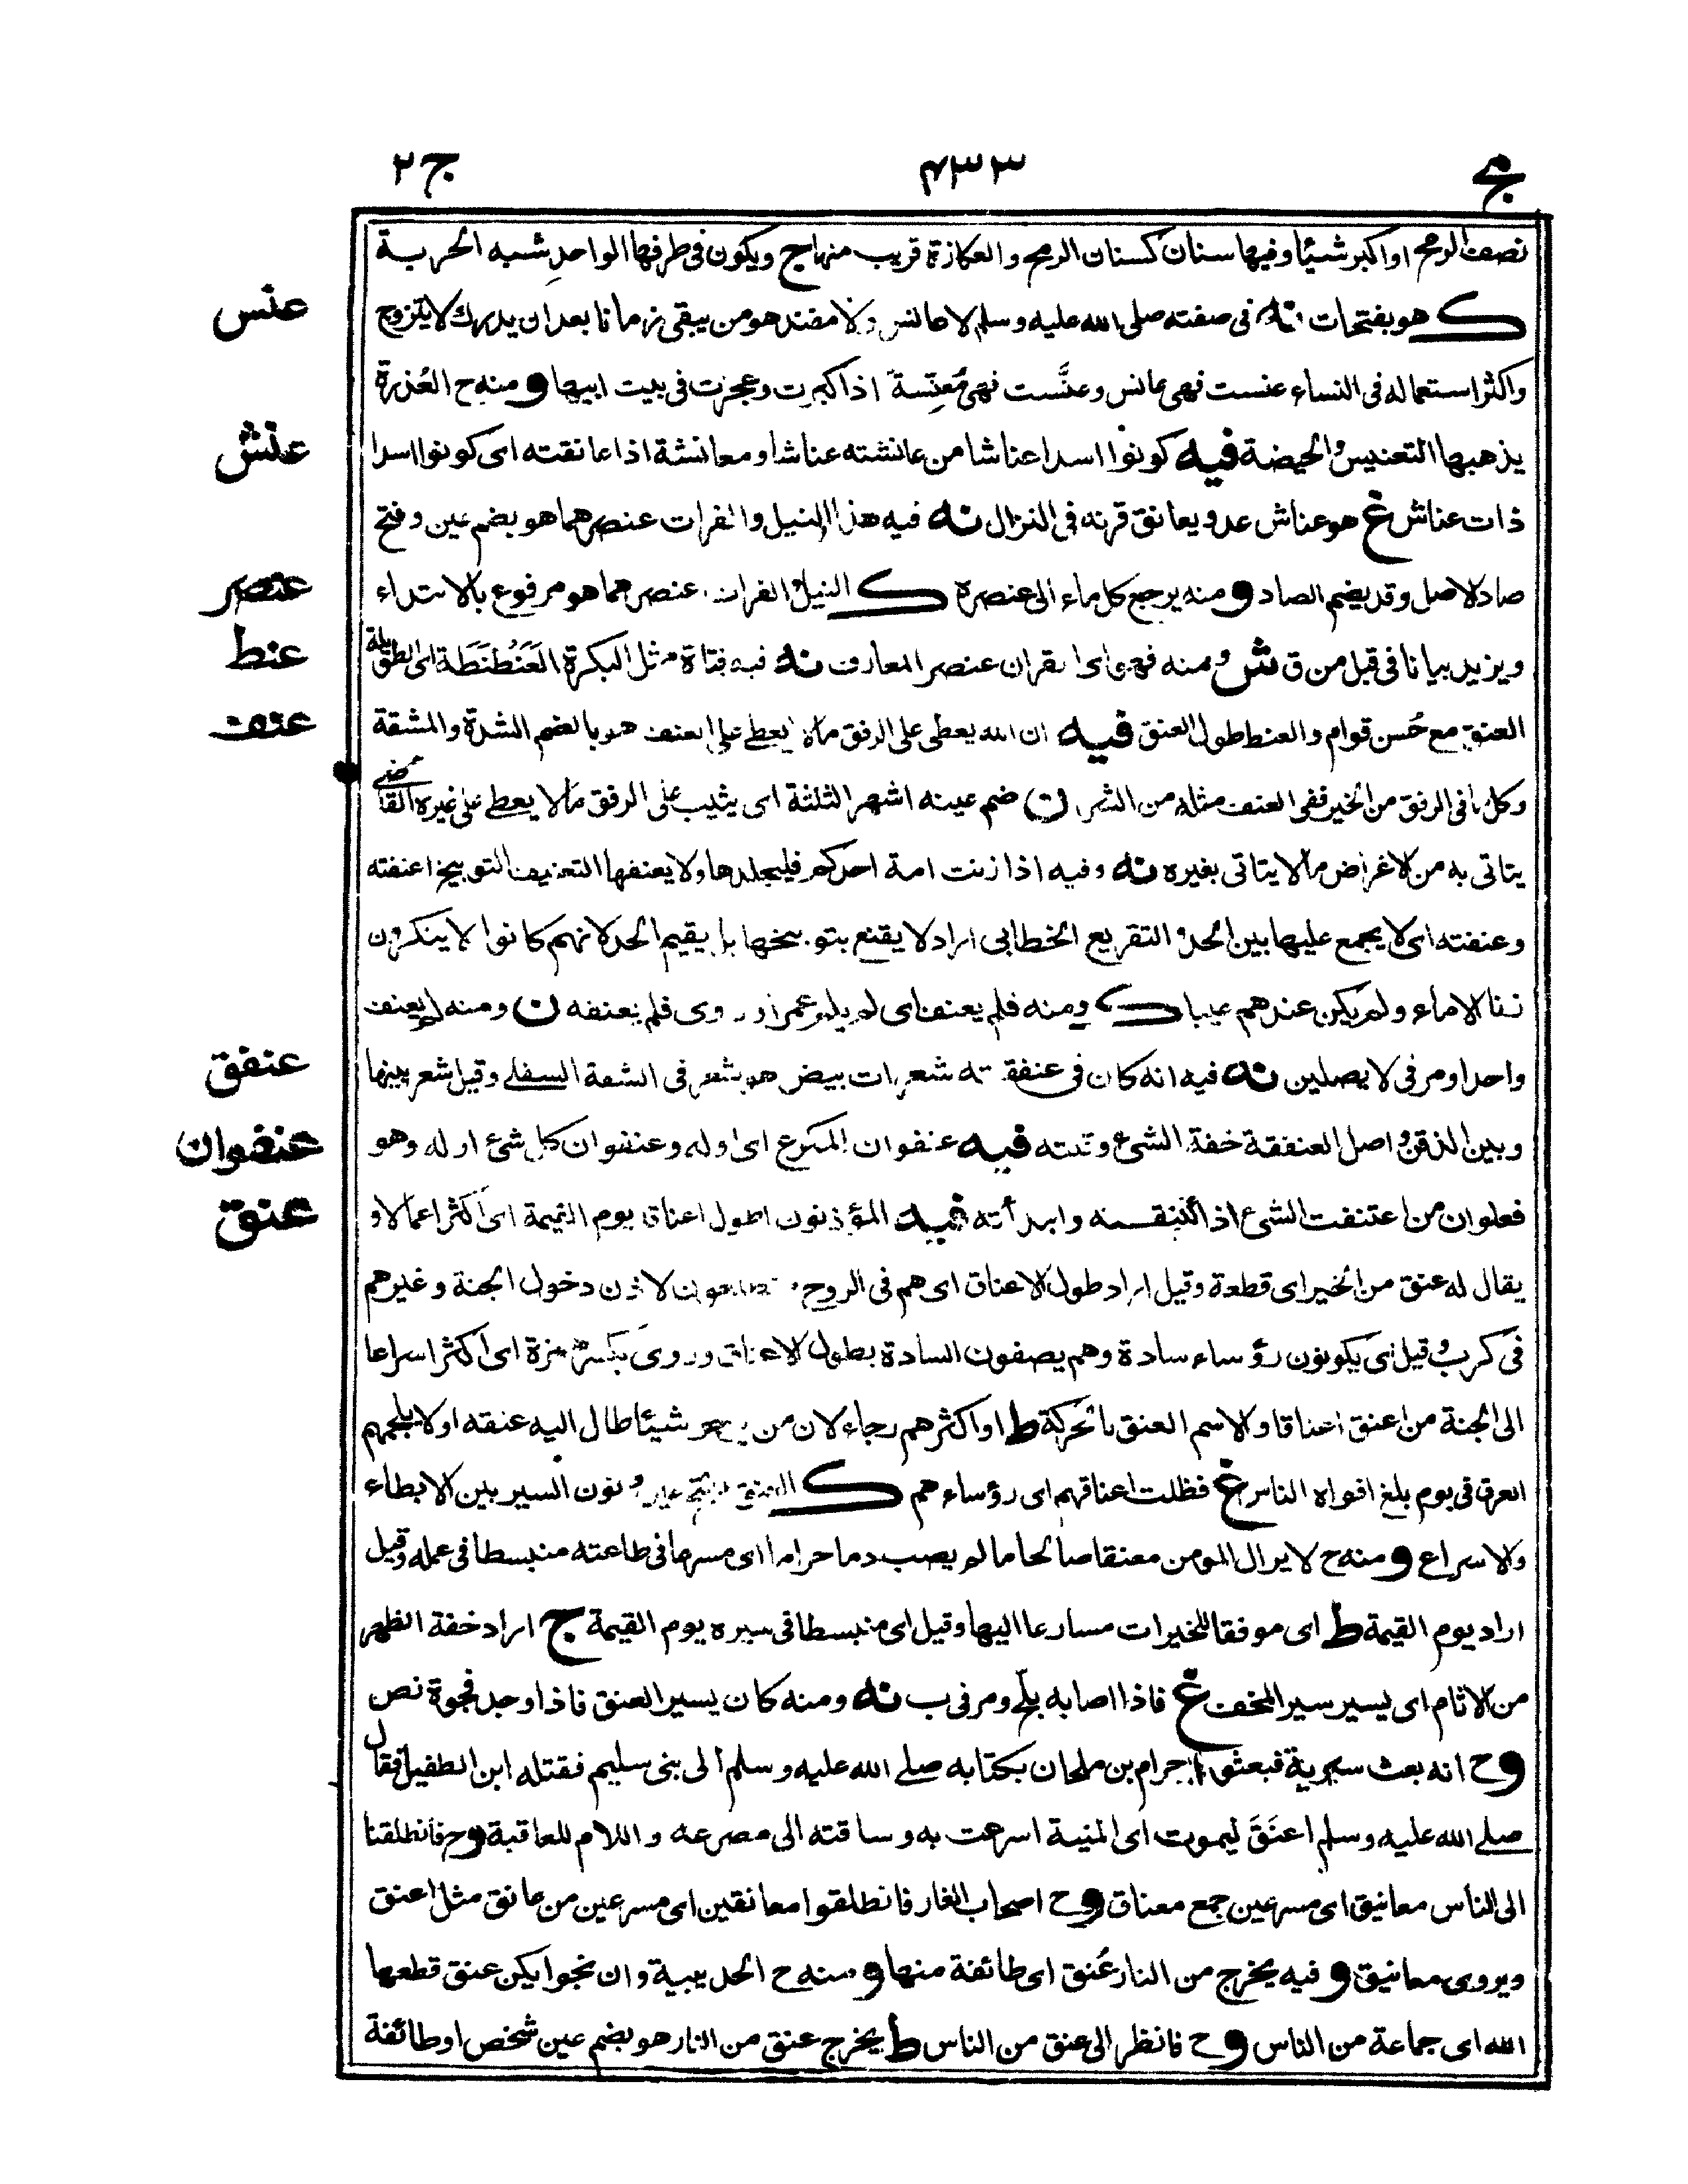 مج ٤٣٣ ج ٢
نصف الرمح او اكبر شيئا وفيها سنان كسنان الرمح والعكازة قريب منها ج ويكون فى طرفها الواحد شبه الحربة
عنس
ك هو بفتحات نه فى صفته صلى الله عليه وسلم لا عانس ولا مفند هو من يبقى زمانا بعد ان يدرك لا يتزوج
واكثر استعماله فى النساء عنست فهى عانس وعنَّست فهى مُعنِّسة اذا كبرت وعجزت فى بيت ابيها و منه ح العُذرة
عنش
يذهبها التعنيس والحيضة فيه كونوا اسدا عناشا من عانشته عناشا ومعانشة اذا عانقته اى كونوا اسدا
ذات عناش غ هو عناش عدو يعانق قرنه فى النزال نه فيه هذا النيل والفرات عنصرهما هو بضم عين وفتح
عنصر
صاد الاصل وقد يضم الصاد و منه يرجع كل ماء الى عنصره ك النيل والفرات عنصرهما هو مرفوع بالابتداء
عنط
ويزيد بيانا فى قبل من ق ش ومنه فهى اى القران عنصر المعارف نه فيه فتاة مثل البكرة العَنَطْنَطَة اى الطويلة
عنف
العنق مع حُسن قوام والعنط طول العنق فيه ان الله يعطى على الرفق مالا يعطى على العنف هو بالضم الشدة والمشقة
وكل ما فى الرفق من الخير ففى العنف مثله من الشر ن ضم عينه اشهر الثلثة اى يثيب على الرفق مالا يعطى على غيره القاضى
يتاتى به من الاغراض مالا يتاتى بغيره نه وفيه اذا زنت امة احدكم فليجلدها ولا يعنفها التعنيف التوبيخ اعنفته
وعنفته اى لا يجمع عليها بين الحد والتقريع الخطابى اراد لا يقنع بتوبيخها بل يقيم الحد لانهم كانوا لا ينكرون
زنا الاماء ولم يكن عندهم عيبا ك ومنه فلم يعنف اى لم يلم عمر وروى فلم يعنفه ن ومنه لم يعنف
عنفق
واحدا ومر فى لا يصلين نه فيه انه كان فى عنفقته شعرات بيض هو شعر فى الشفة السفلى وقيل شعر بينها
عنفوان
وبين الذقن واصل العنفقة خفة الشىء وقلته فيه عنفوان المكرع اى اوله وعنفوان كل شىء اوله وهو
عنق
فعلوان من اعتنفت الشىء اذا ائتنفته وابدأته فيه المؤذنون اطول اعناقا يوم القيمة اى اكثر اعمالا و
يقال له عنق من الخير اى قطعة وقيل اراد طول الاعناق اى هم فى الروح متطلعون لان يؤذن دخول الجنة وغيرهم
فى كرب وقيل اى يكونون رؤساء سادة وهم يصفون السادة بطول الاعناق وروى بكسر همزة اى اكثر اسراعا
الى الجنة من اعنق اعناقا والاسم العنق بالحركة ط او اكثرهم رجاء لان من يرجو شيئا طال اليه عنقه او لا يلجمهم
العرق فى يوم بلغ افواه الناس غ فظلت اعناقهم اى رؤساءهم ك العنق بفتح عين ونون السير بين الابطاء
والاسراع و منه ح لا يزال المومن معنقا صالحا ما لم يصب دما حراما اى مسرعا فى طاعته منبسطا فى عمله وقيل
اراد يوم القيمة ط اى موفقا للخيرات مسارعا اليها وقيل اى منبسطا فى سيره يوم القيمة ج اراد خفة الظهر
من الاثام اى يسير سير المخف غ فاذا اصابه بلّح ومر فى ب نه ومنه كان يسير العنق فاذا وجد فجوة نص
و ح انه بعث سرية فبعثوا حرام بن ملحان بكتابه صلى الله عليه وسلم الى بنى سليم فقتله ابن الطفيل فقال
صلى الله عليه وسلم اعنَقَ ليموت اى المنية اسرعت به وساقته الى مصرعه واللام للعاقبة و ح فانطلقنا
الى الناس معانيق اى مسرعين جمع معناق و ح اصحاب الغار فانطلقوا معانقين اى مسرعين من عانق مثل اعنق
ويروى معانيق و فيه يخرج من النار عُنق اى طائفة منها و منه ح الحديبية وان نجوا يكن عنق قطعها
الله اى جماعة من الناس و ح فانظر الى عنق من الناس ط يخرج عنق من النار هو بضم عين شخص او طائفة